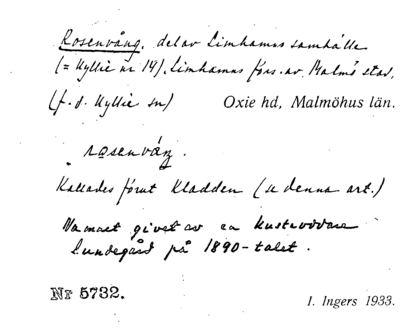 Rosenvång, del av Limhamns samhälle
(= Hyllie nr 14), Limhamns förs. av Malmö stad,
(f. d. Hyllie sn) Oxie hd, Malmöhus län.
rosenváŋ.
Kallades förut Kladden (se denna art.)
Namnet givet av en
Lundegård på 1890-talet.
Nr 5732.
I. Ingers 1933.